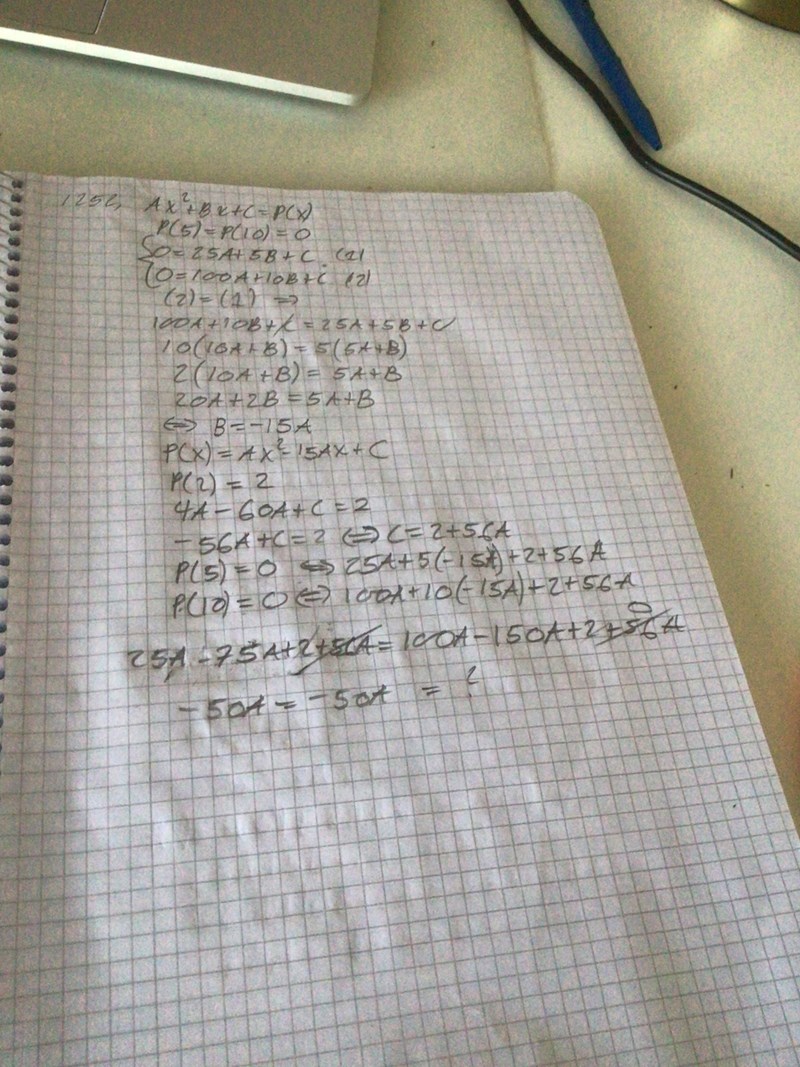 Ax²+Bx+C=P(x)
P(5)=P(10)=0
0=25A+5B+C (1)
0=100A+10B+C (2)
(2)=(1) ⇒
100A+10B+C=25A+5B+C
10(10A+B)=5(5A+B)
2(10A+B)=5A+B
20A+2B=5A+B
⇔ B=-15A
P(x)=Ax²-15Ax+C
P(2)=2
4A-60A+C=2
-56A+C=2 ⇔ C=2+56A
P(5)=0 ⇔ 25A+5(-15A)+2+56A
P(10)=0 ⇔ 100A+10(-15A)+2+56A
25A-75A+2+56A=100A-150A+2+56A
-50A=-50A =?